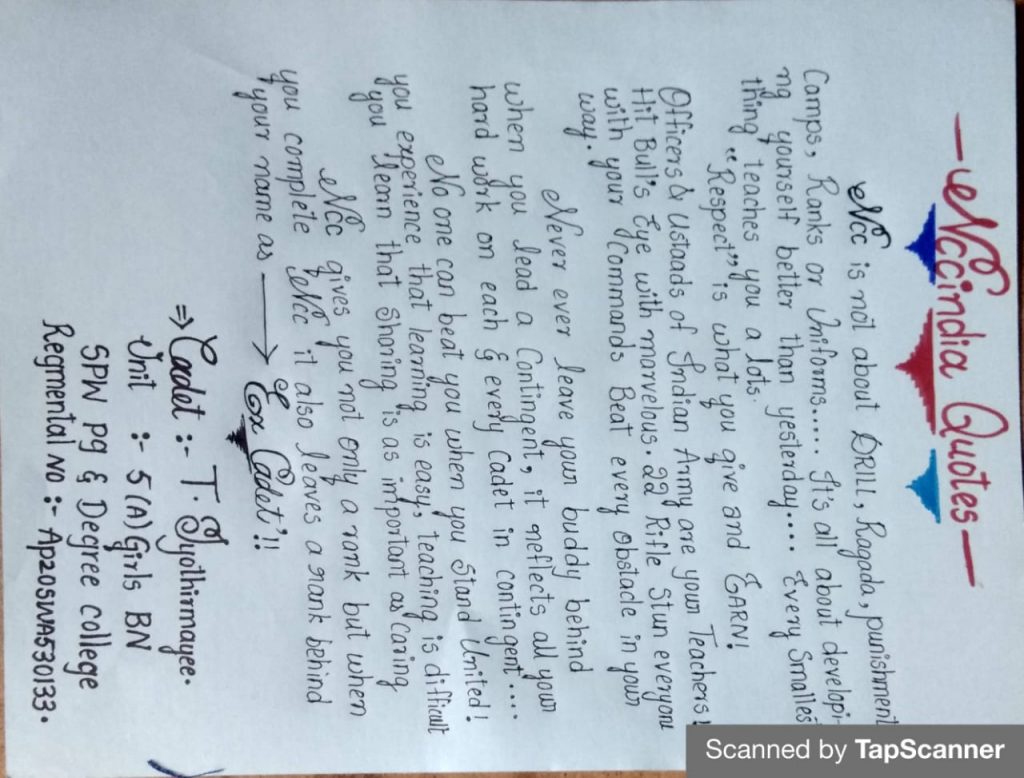 — Nccindia Quotes —
Ncc is not about DRILL, Ragada, punishment
Camps, Ranks or Uniforms..... It's all about developi-
ng yourself better than yesterday.... Every Smalles
thing teaches you a lots.
"Respect" is what you give and EARN!
Officers & Ustaads of Indian Army are your Teachers!
Hit Bull's Eye with marvelous .22 Rifle Stun everyone
with your Commands Beat every obstacle in your
way.
Never ever leave your buddy behind
when you lead a Contingent, it reflects all your
hard work on each & every Cadet in contingent....
No one can beat you when you Stand United!
you experience that learning is easy, teaching is difficult
you learn that Sharing is as important as Caring
Ncc gives you not only a rank but when
you complete Ncc it also leaves a rank behind
your name as ⟶ Ex Cadet"!!
⇒ Cadet :- T. Jyothirmayee.
Unit :- 5 (A) Girls BN
SPW pg & Degree college
Regmental no :- AP20SWA530133.
Scanned by TapScanner